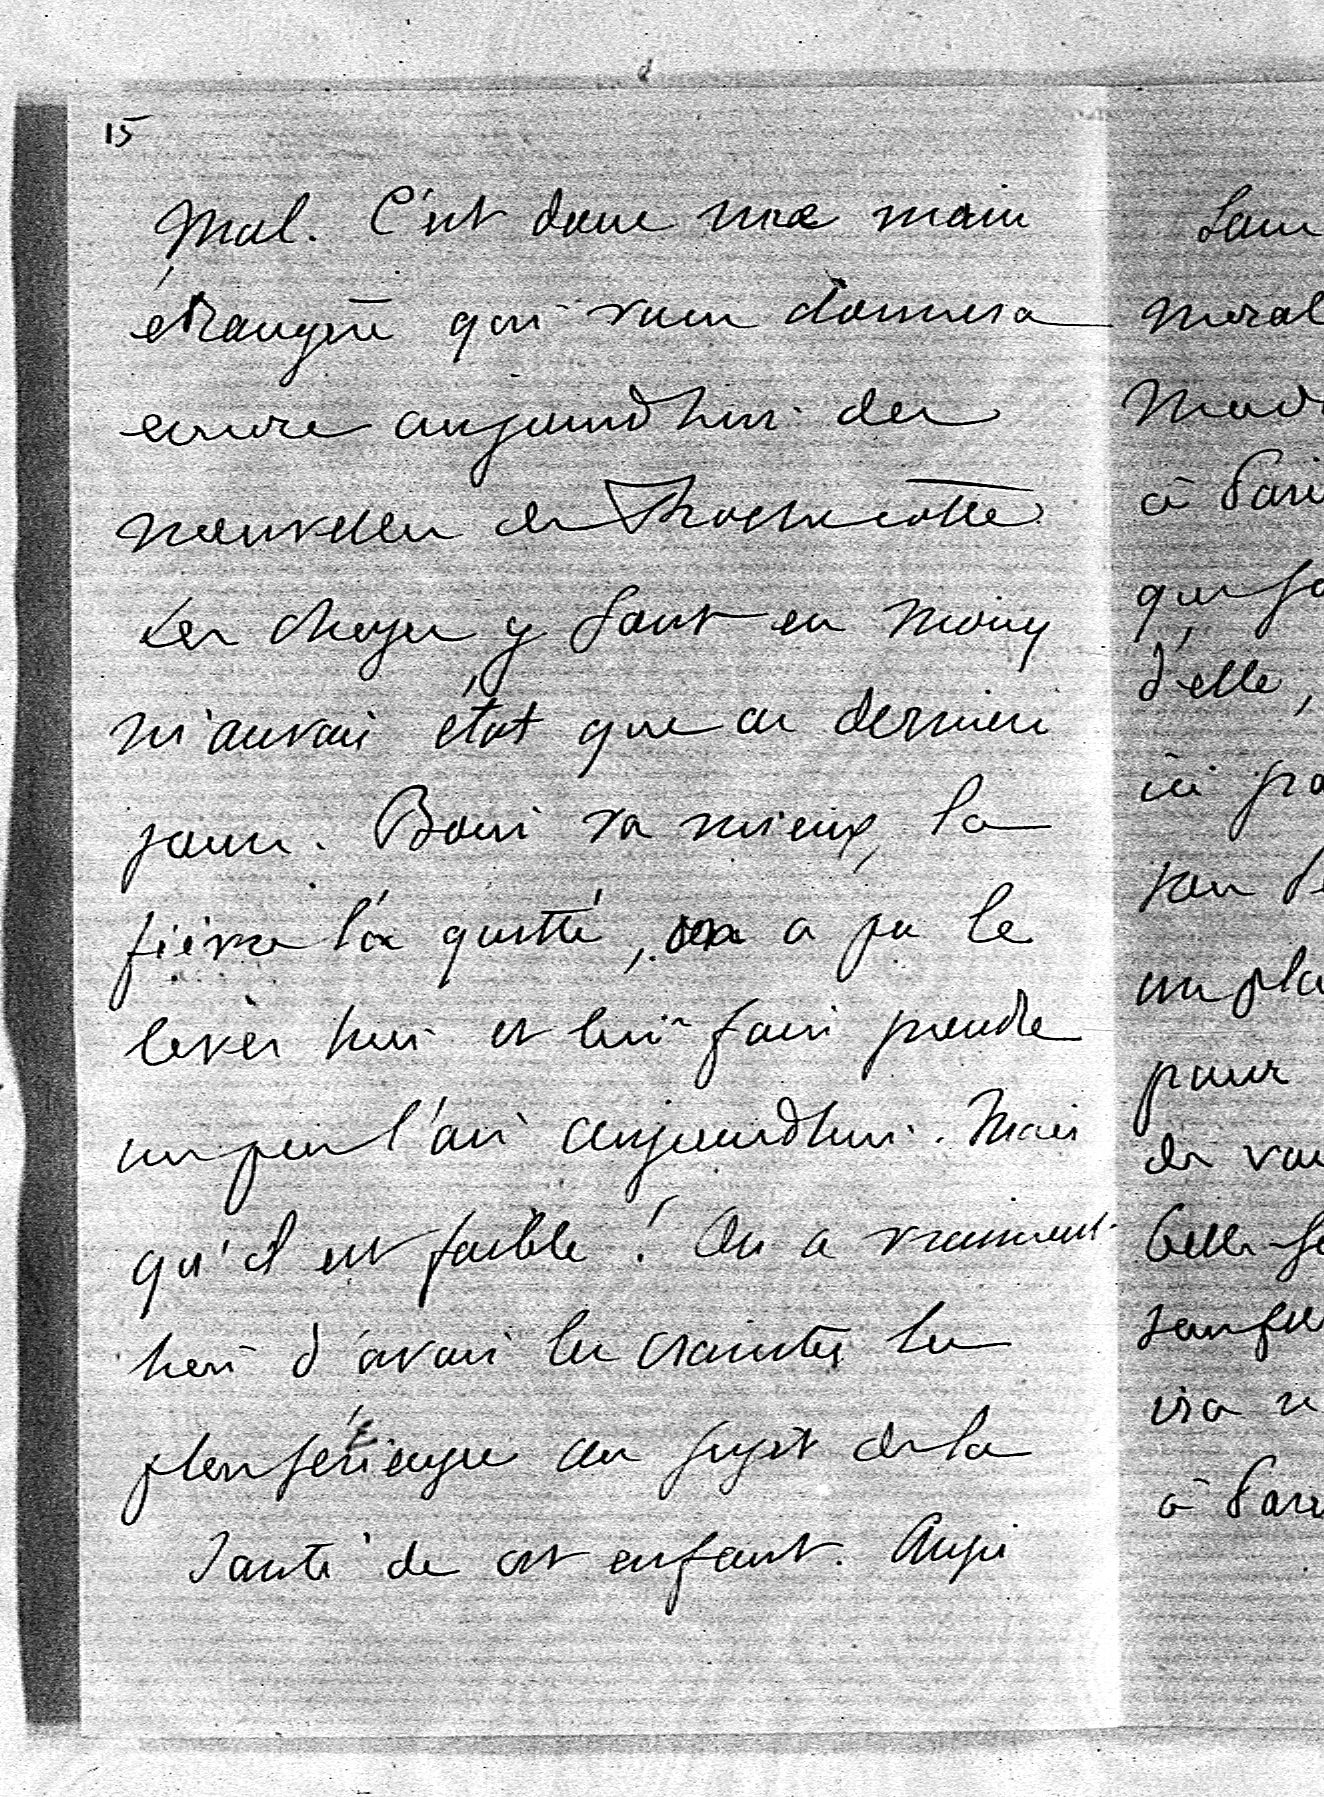 15
mal. C'est donc une main
étrangère qui vous donnera
encore aujourd'hui des
nouvelles de Rochecotte.
Les choses y sont en moins
mauvais état que ces derniers
jours. Boni va mieux, la
fièvre l'a quitté, on a pu le
lever hier et lui faire prendre
un peu l'air aujourd'hui. Mais
qu'il est faible ! On a vraiment
lieu d'avoir les craintes les
plus sérieuses au sujet de la
santé de cet enfant. Aussi
moral
à Paris
d'elle,
ici
pour
de
à Paris